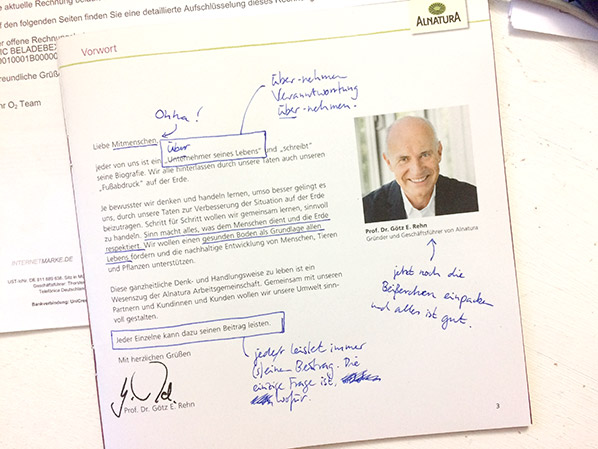 e aktuelle Rechnung
f den folgenden Seiten finden Sie eine detaillierte Aufschlüsselung dieses
er offene
BELADEBE
0010001B00000
reundliche Grüße
hr O₂ Team
INTERNETMARKE.DE
Vorwort
ALNATURA
über-nehmen
Verantwortung
über-nehmen.
Ohha!
Liebe Mitmenschen,
über
jeder von uns ist ein „Unternehmer seines Lebens“ und „schreibt“
seine Biografie. Wir alle hinterlassen durch unsere Taten auch unseren
„Fußabdruck“ auf der Erde.
Je bewusster wir denken und handeln lernen, umso besser gelingt es
uns, durch unsere Taten zur Verbesserung der Situation auf der Erde
beizutragen. Schritt für Schritt wollen wir gemeinsam lernen, sinnvoll
zu handeln. Sinn macht alles, was dem Menschen dient und die Erde
respektiert. Wir wollen einen gesunden Boden als Grundlage allen
Lebens fördern und die nachhaltige Entwicklung von Menschen, Tieren
und Pflanzen unterstützen.
Diese ganzheitliche Denk- und Handlungsweise zu leben ist ein
Wesenszug der Alnatura Arbeitsgemeinschaft. Gemeinsam mit unseren
Partnern und Kundinnen und Kunden wollen wir unsere Umwelt sinn-
voll gestalten.
Jeder Einzelne kann dazu seinen Beitrag leisten.
Mit herzlichen Grüßen
Prof. Dr. Götz E. Rehn
Prof. Dr. Götz E. Rehn
Gründer und Geschäftsführer von Alnatura
jetzt noch die
einpacken
und alles ist gut.
jede/r leistet immer
(s)einen Beitrag. Die
einzige Frage ist,
wofür.
3